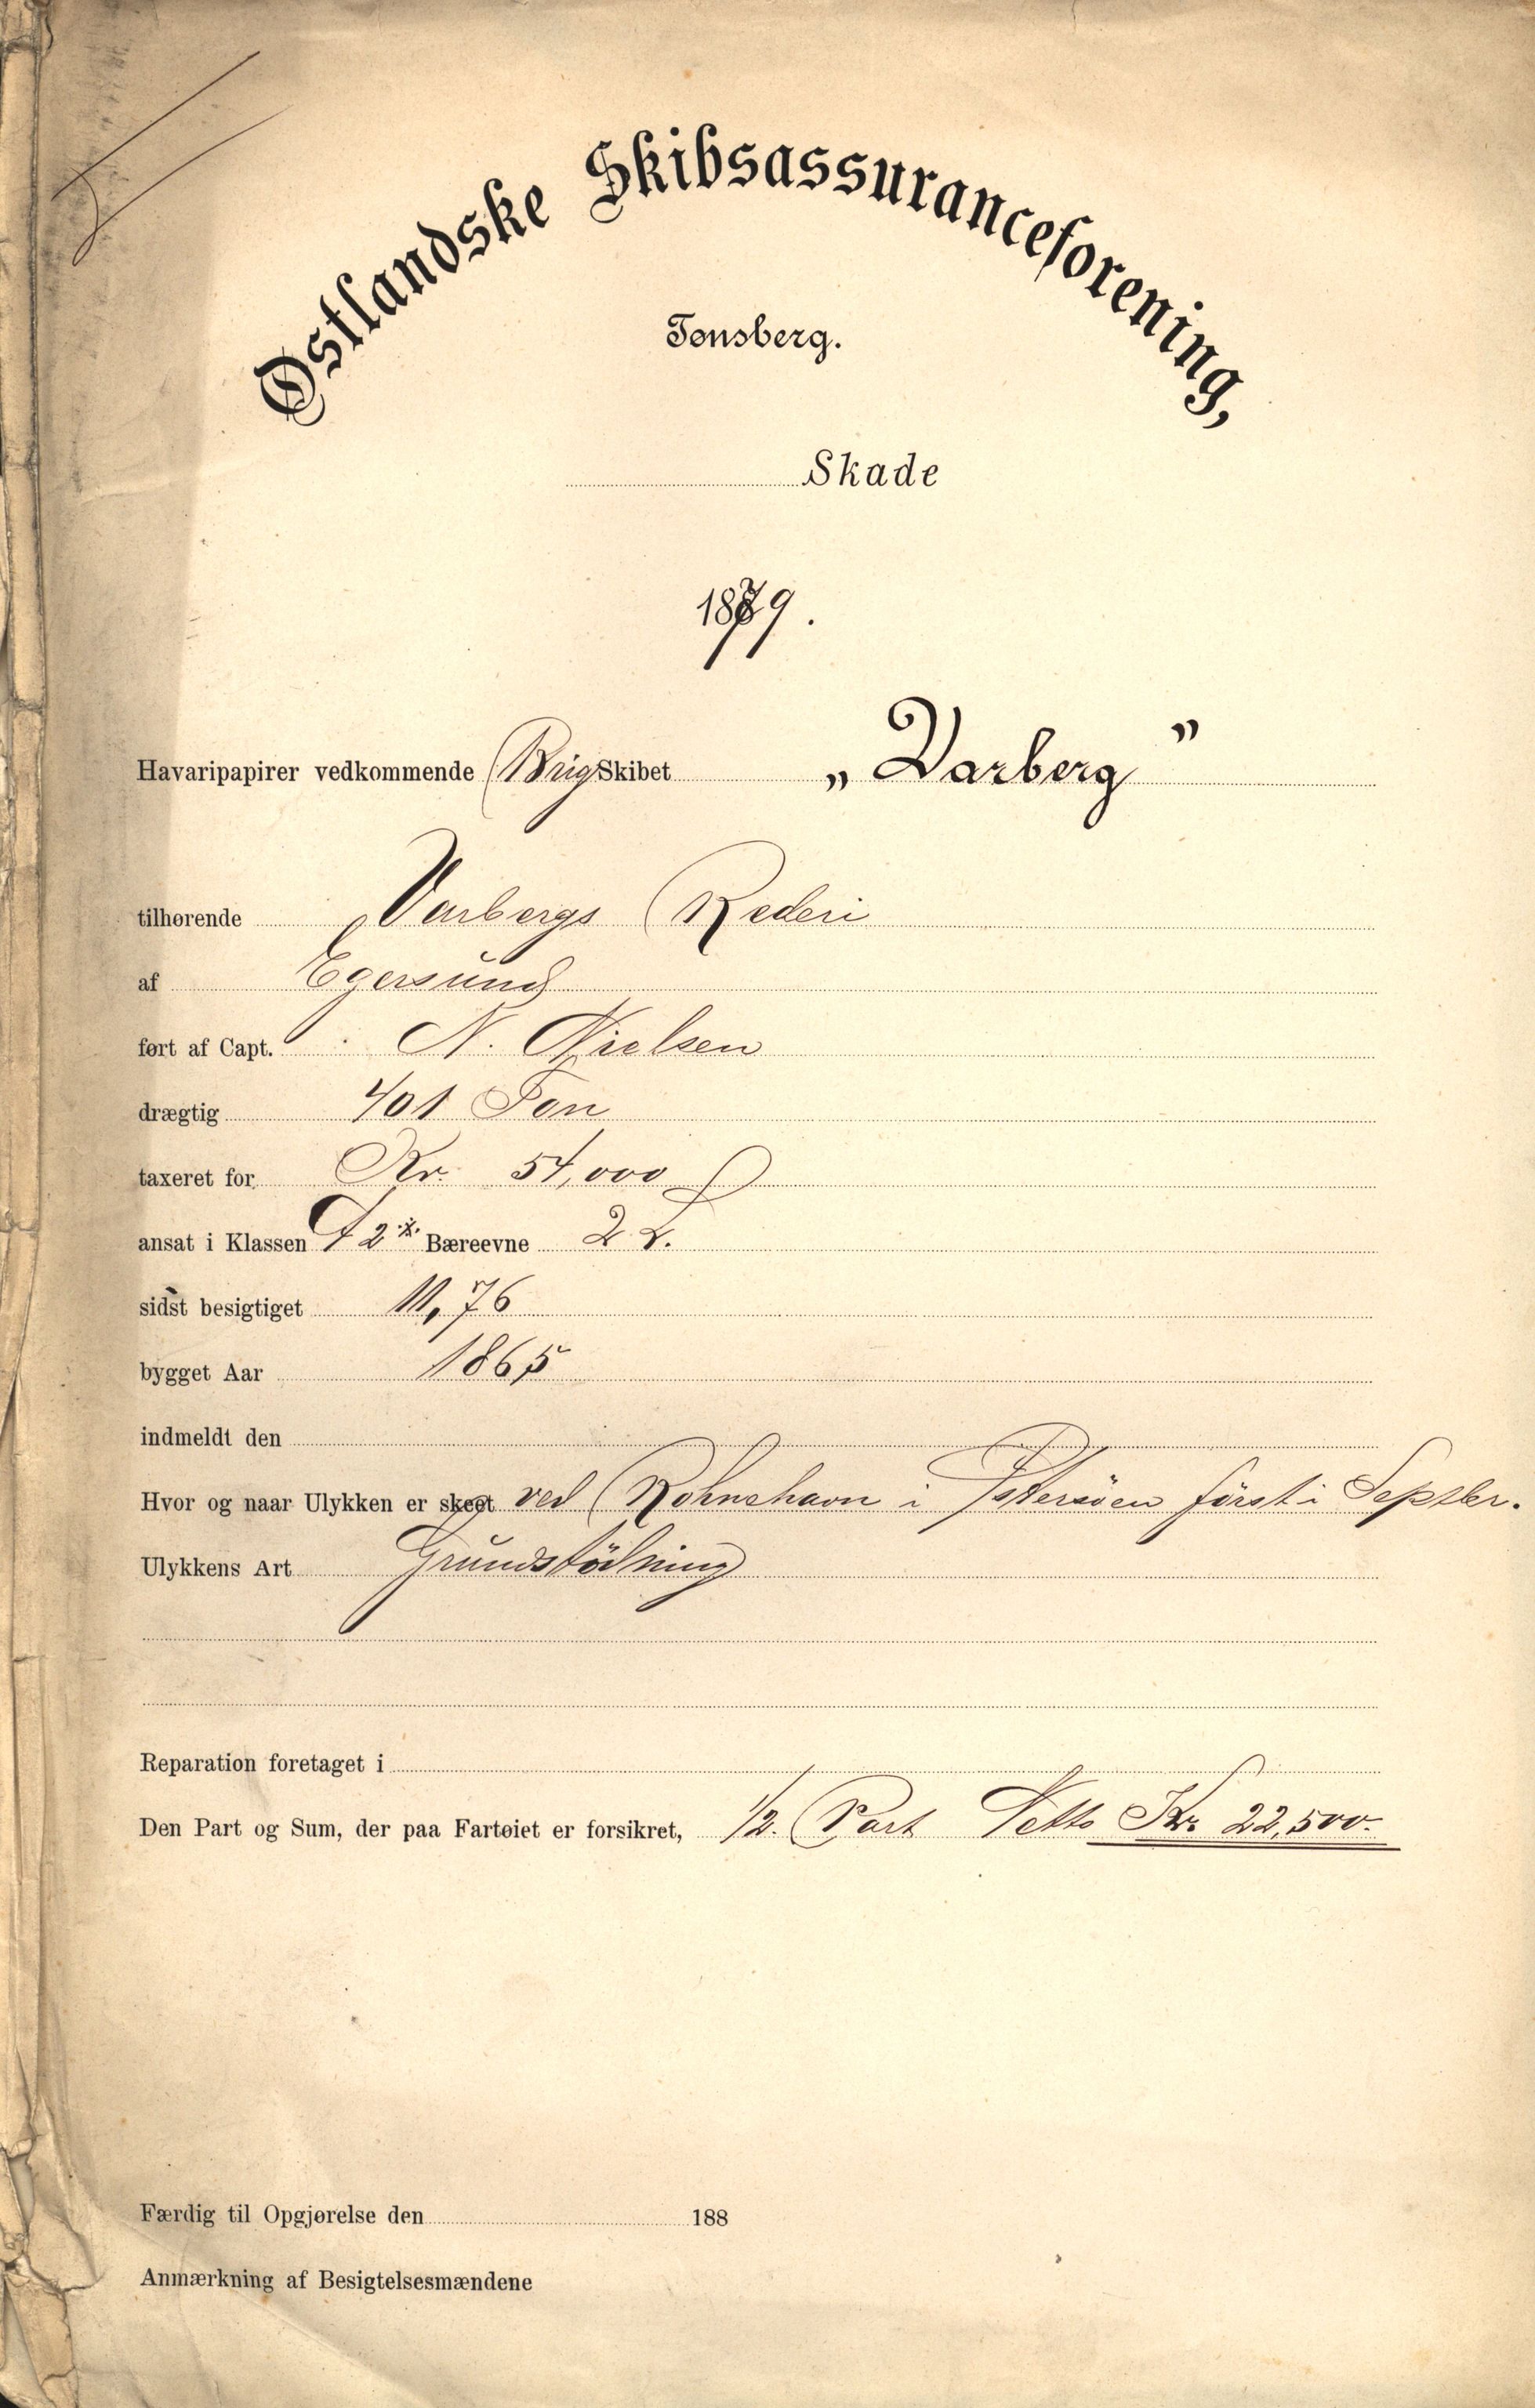 Østlandske Skibsassuranceforening,
Tønsberg.
Skade
1879.
Havaripapirer vedkommende Brig Skibet „Varberg”
tilhørende Varbergs Rederi
af Egersund
ført af Capt. N. Nielsen
drægtig 401 Ton
taxeret for Kr. 54,000
ansat i Klassen A 2 Bæreevne 2 L.
sidst besigtiget 11,76
bygget Aar 1865
indmeldt den
Hvor og naar Ulykken er skeet ved i Østersöen först i Septbr.
Ulykkens Art Grundstödning
Reparation foretaget i
Den Part og Sum, der paa Fartøiet er forsikret, 1/2. Part Netto Kr. 22,500.
Færdig til Opgjørelse den 188
Anmærkning af Besigtelsesmændene